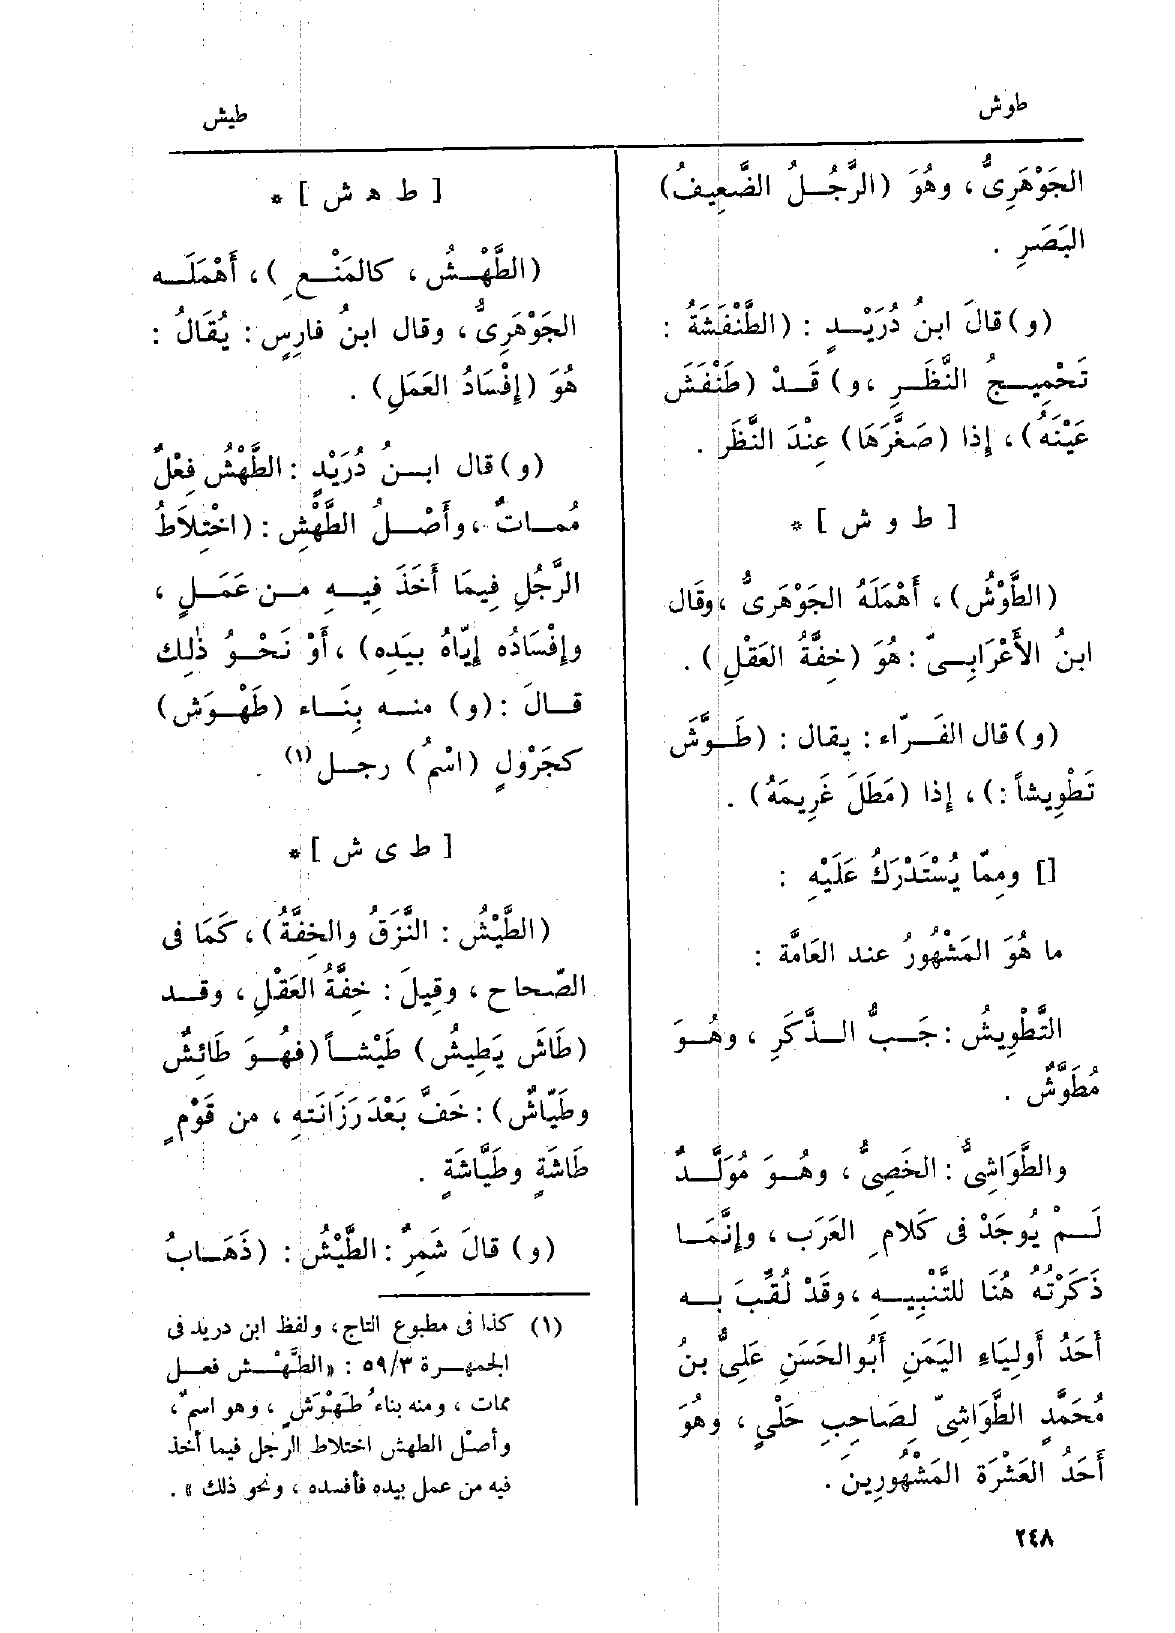 طوش
طيش
الجَوْهَرِىُّ، وهُوَ (الرَّجُلُ الضَّعِيفُ)
البَصَرِ .
(و) قالَ ابنُ دُرَيْدٍ : (الطَّنْفَشَةُ :
تَحْمِيجُ النَّظَرِ ، و) قَدْ (طَنْفَشَ
عَيْنَهُ)، إِذا (صَغَّرَهَا) عِنْدَ النَّظَرِ .
[ ط و ش ] *
(الطَّوْشُ)، أَهْمَلَهُ الجَوْهَرِىُّ، وقَال
ابنُ الأَعْرَابِىّ : هُوَ (خِفَّةُ العَقْلِ) .
(و) قال الفَرّاء : يقال : (طَوَّشَ
تَطْوِيشاً :)، إِذا (مَطَلَ غَرِيمَهُ) .
[] ومِمّا يُسْتَدْرَكُ عَلَيْهِ :
ما هُوَ المَشْهُورُ عند العَامَّة :
التَّطْوِيشُ : جَبُّ الذَّكَرِ ، وهُوَ
مُطَوَّشٌ .
والطَّوَاشِىُّ : الخَصِىُّ ، وهُوَ مُوَلَّدٌ
لَمْ يُوجَدْ فى كَلامِ العَرَب ، وإِنَّمَا
ذَكَرْتُهُ هُنَا للتَّنْبِيهِ ، وقَدْ لُقِّبَ به
أَحَدُ أَولِيَاءِ اليَمَنِ أَبُو الحَسَنِ عَلِىُّ بنُ
مُحَمَّدٍ الطَّوَاشِىّ لِصَاحِبِ حَلْىٍ ، وهُوَ
أَحَدُ العَشْرَة المَشْهُورِينَ .
[ ط ه ش ] *
(الطَّهْشُ ، كالمَنْعِ)، أَهْمَلَه
الجَوْهَرِىُّ، وقال ابنُ فارِسٍ : يُقَالُ :
هُوَ (إِفْسَادُ العَمَلِ) .
(و) قال ابنُ دُرَيْدٍ : الطَّهْشُ فِعْلٌ
مُماتٌ ، وأَصْلُ الطَّهْشِ : (اخْتِلاَطُ
الرَّجُلِ فِيمَا أَخَذَ فِيهِ من عَمَلٍ ،
وإِفْسَادُه إِيّاهُ بيَدِه) ، أَوْ نَحْوُ ذٰلِك
قالَ : (و) منه بِنَاء (طَهْوَش)
كجَرْوَلٍ (اسْمُ) رجل (١) .
[ ط ى ش ] *
(الطَّيْشُ : النَّزَقُ والخِفَّةُ)، كَمَا فى
الصّحاح ، وقِيلَ : خِفَّةُ العَقْلِ ، وقد
(طَاشَ يَطِيشُ) طَيْشاً (فهُوَ طَائِشٌ
وطَيّاشٌ) : خَفَّ بَعْدَ رَزَانَتهِ ، من قَوْمٍ
طَاشَةٍ وطَيَّاشَةٍ .
(و) قالَ شَمِرٌ : الطَّيْشُ : (ذَهَابُ
(١) كذا فى مطبوع التاج، ولفظ ابن دريد فى
الجمهرة ٥٩/٣ : «الطَّهْش فعل
ممات ، ومنه بناءُ طَهْوَشٍ ، وهو اسمٌ،
وأصْل الطهش اختلاط الرجل فيما أخذ
فيه من عمل بيده فأفسده ، ونحو ذلك » .
٢٤٨